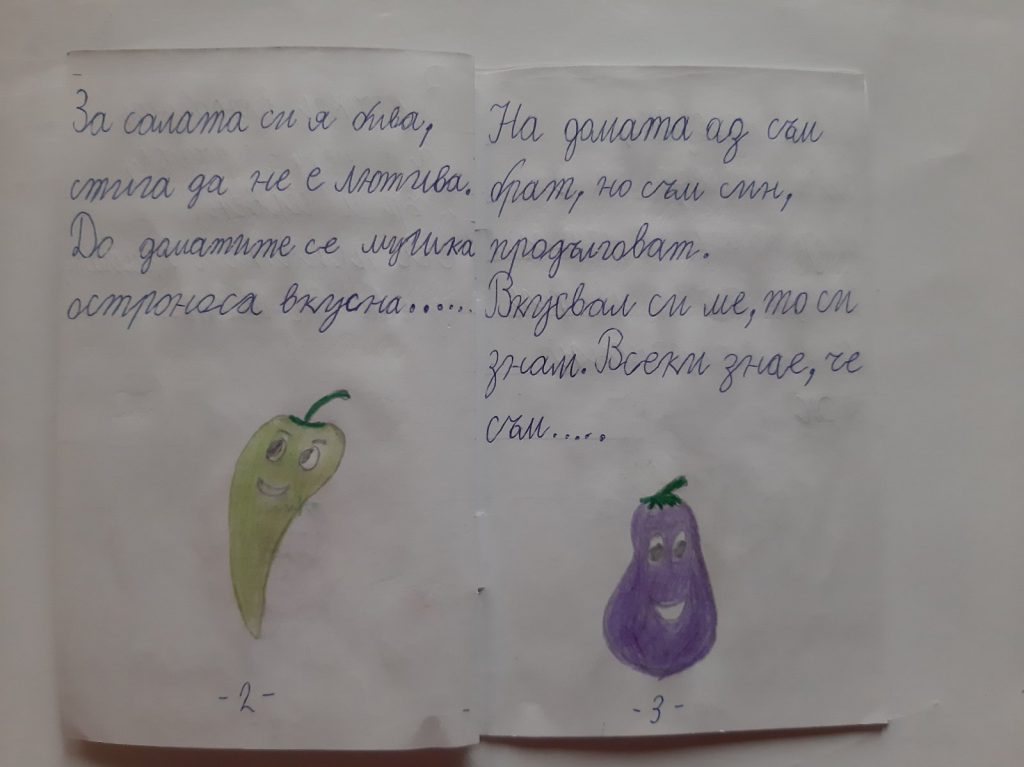 За салата си я бива,
стига да не е лютива.
До доматите се мушка
остроноса вкусна......
- 2 -
На домата аз съм
брат, но съм син,
продълговат.
Вкусвал си ме, то си
знам. Всеки знае, че
съм.....
- 3 -